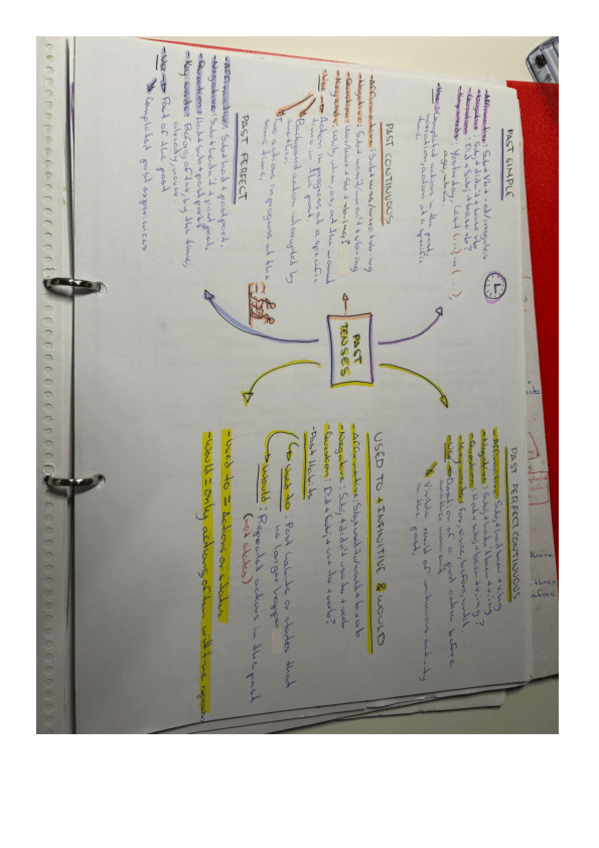 PAST SIMPLE
-Affirmative: Subj + Vb + -ed/irregular
-Negative: Subj + didn't + base vb
-Question: Did + Subj + base vb?
-Keywords: Yesterday, last (...), in (...),
ago, when.
-Use: Completed actions in the past
narration, action at a specific
time.
PAST CONTINUOUS
-Affirmative: Subj + was/were + vb-ing
-Negative: Subj + wasn't/weren't + vb-ing
-Question: Was/Were + Subj + vb-ing?
-Keywords: while, when, as, at the moment
-Use → Action in progress at a specific
time in the past
Background action interrupted by
another.
Two actions in progress at the
same time.
PAST PERFECT
-Affirmative: Subj + had + past part.
-Negative: Subj + hadn't + past part.
-Question: Had + Subj + past part?
-Keywords: Before, after, by the time,
already, never.
-Use → Past of the past
Completed past experiences
PAST
TENSES
PAST PERFECT CONTINUOUS
-Affirmative: Subj + had been + v.ing
-Negative: Subj + hadn't been + v.ing
-Question: Had + subj + been + v.ing?
-Keywords: For, since, before, until.
-Use → Duration of a past action before
another moment
Visible result of continuous activity
in the past.
USED TO + INFINITIVE & WOULD
-Affirmative: Subj + used to/would + base vb
-Negative: Subj + didn't use to + verb
-Question: Did + Subj + use to + verb?
-Past Habits
→ Used to: Past habits or states that
no longer happen
→ Would: Repeated actions in the past
(not states)
-Used to = Actions or states
-Would = Only actions, often with time